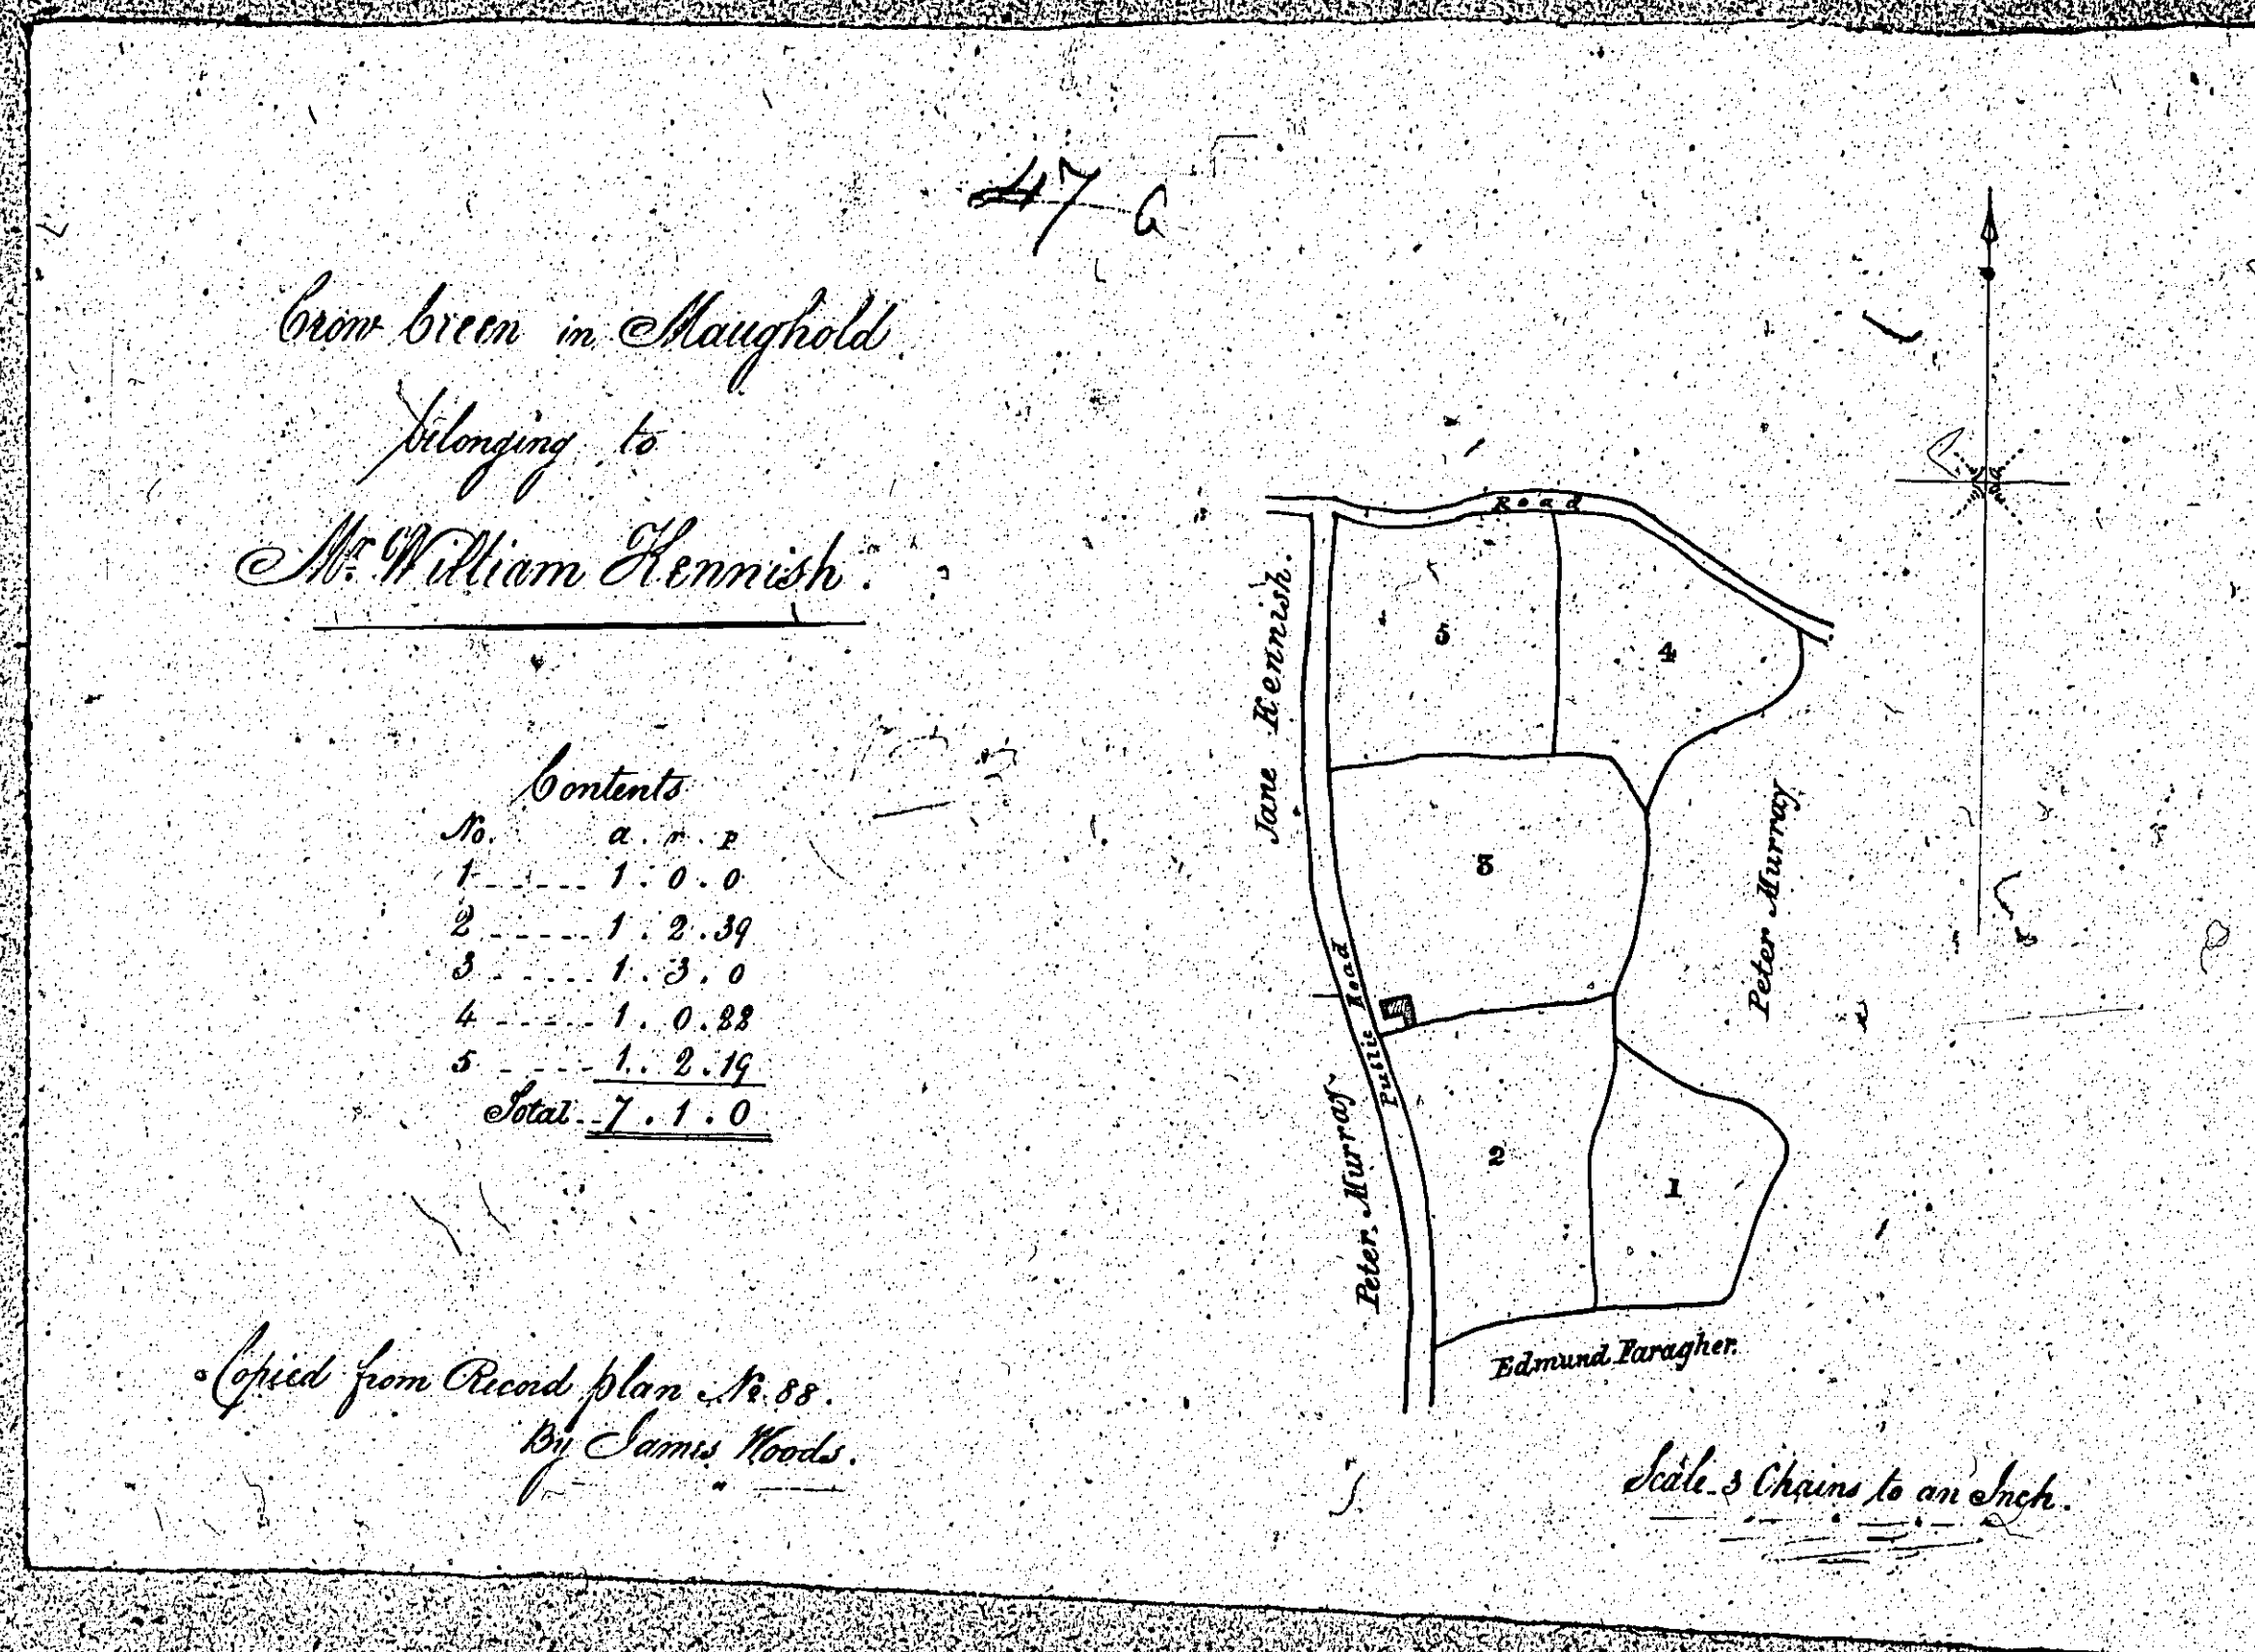 47 G
Crow Creen in Maughold
belonging to
Mr. William Kennish.
Contents
No. a . r . p
1 ------ 1 . 0 . 0
2 ------ 1 . 2 . 39
3 ------ 1 . 3 . 0
4 ------ 1 . 0 . 22
5 ------ 1 . 2 . 19
Total -- 7 . 1 . 0
Copied from Record plan No. 88.
By James Woods.
Road
5
4
Jane Kennish.
3
Peter Murray
Public Road
2
1
Peter Murray
Edmund Faragher.
Scale 3 Chains to an Inch.